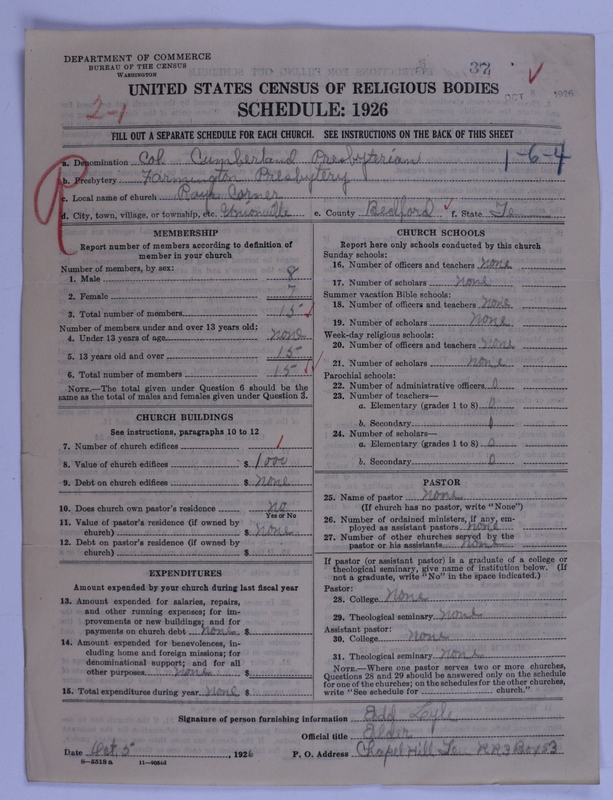 DEPARTMENT OF COMMERCE
BUREAU OF THE CENSUS
WASHINGTON
37
OCT 1926
UNITED STATES CENSUS OF RELIGIOUS BODIES
SCHEDULE: 1926
2-1
FILL OUT A SEPARATE SCHEDULE FOR EACH CHURCH. SEE INSTRUCTIONS ON THE BACK OF THIS SHEET
R
1-6-4
a. Denomination Col. Cumberland Presbyterian
b. Presbytery Farmington Presbytery
c. Local name of church Corner
d. City, town, village, or township, etc. Unionville e. County Bedford f. State Te
MEMBERSHIP
Report number of members according to definition of
member in your church
Number of members, by sex:
1. Male 8
2. Female 7
3. Total number of members 15
Number of members under and over 13 years old:
4. Under 13 years of age none
5. 13 years old and over 15
6. Total number of members 15
NOTE.—The total given under Question 6 should be the
same as the total of males and females given under Question 3.
CHURCH BUILDINGS
See instructions, paragraphs 10 to 12
7. Number of church edifices 1
8. Value of church edifices $ 1000
9. Debt on church edifices $ none
10. Does church own pastor's residence no
Yes or No
11. Value of pastor's residence (if owned by
church) $ none
12. Debt on pastor's residence (if owned by
church) $
EXPENDITURES
Amount expended by your church during last fiscal year
13. Amount expended for salaries, repairs,
and other running expences; for im-
provements or new buildings; and for
payments on church debt none $
14. Amount expended for benevolences, in-
cluding home and foreign missions; for
denominational support; and for all
other purposes none $
15. Total expenditures during year none $
CHURCH SCHOOLS
Report here only schools conducted by this church
Sunday schools:
16. Number of officers and teachers none
17. Number of scholars none
Summer vacation Bible schools:
18. Number of officers and teachers none
19. Number of scholars none
Week-day religious schools:
20. Number of officers and teachers none
21. Number of scholars none
Parochial schools:
22. Number of administrative officers 0
23. Number of teachers—
a. Elementary (grades 1 to 8) 0
b. Secondary 0
24. Number of scholars—
a. Elementary (grades 1 to 8) 0
b. Secondary 0
PASTOR
25. Name of pastor None
(If church has no pastor, write "None")
26. Number of ordained ministers, if any, em-
ployed as assistant pastors none
27. Number of other churches served by the
pastor or his assistants none
If pastor (or assistant pastor) is a graduate of a college or
theological seminary, give name of institution below. (If
not a graduate, write "No" in the space indicated.)
Pastor:
28. College None
29. Theological seminary None
Assistant pastor:
30. College None
31. Theological seminary None
NOTE.—Where one pastor serves two or more churches,
Questions 28 and 29 should be answered only on the schedule
for one of the churches; on the schedules for the other churches,
write "See schedule for church."
Signature of person furnishing information Edd Lyle
Official title Elder
Date Oct 5, 1926 P. O. Address Chapel Hill Ten RR3 Box 53
8—5518a 11—9054d